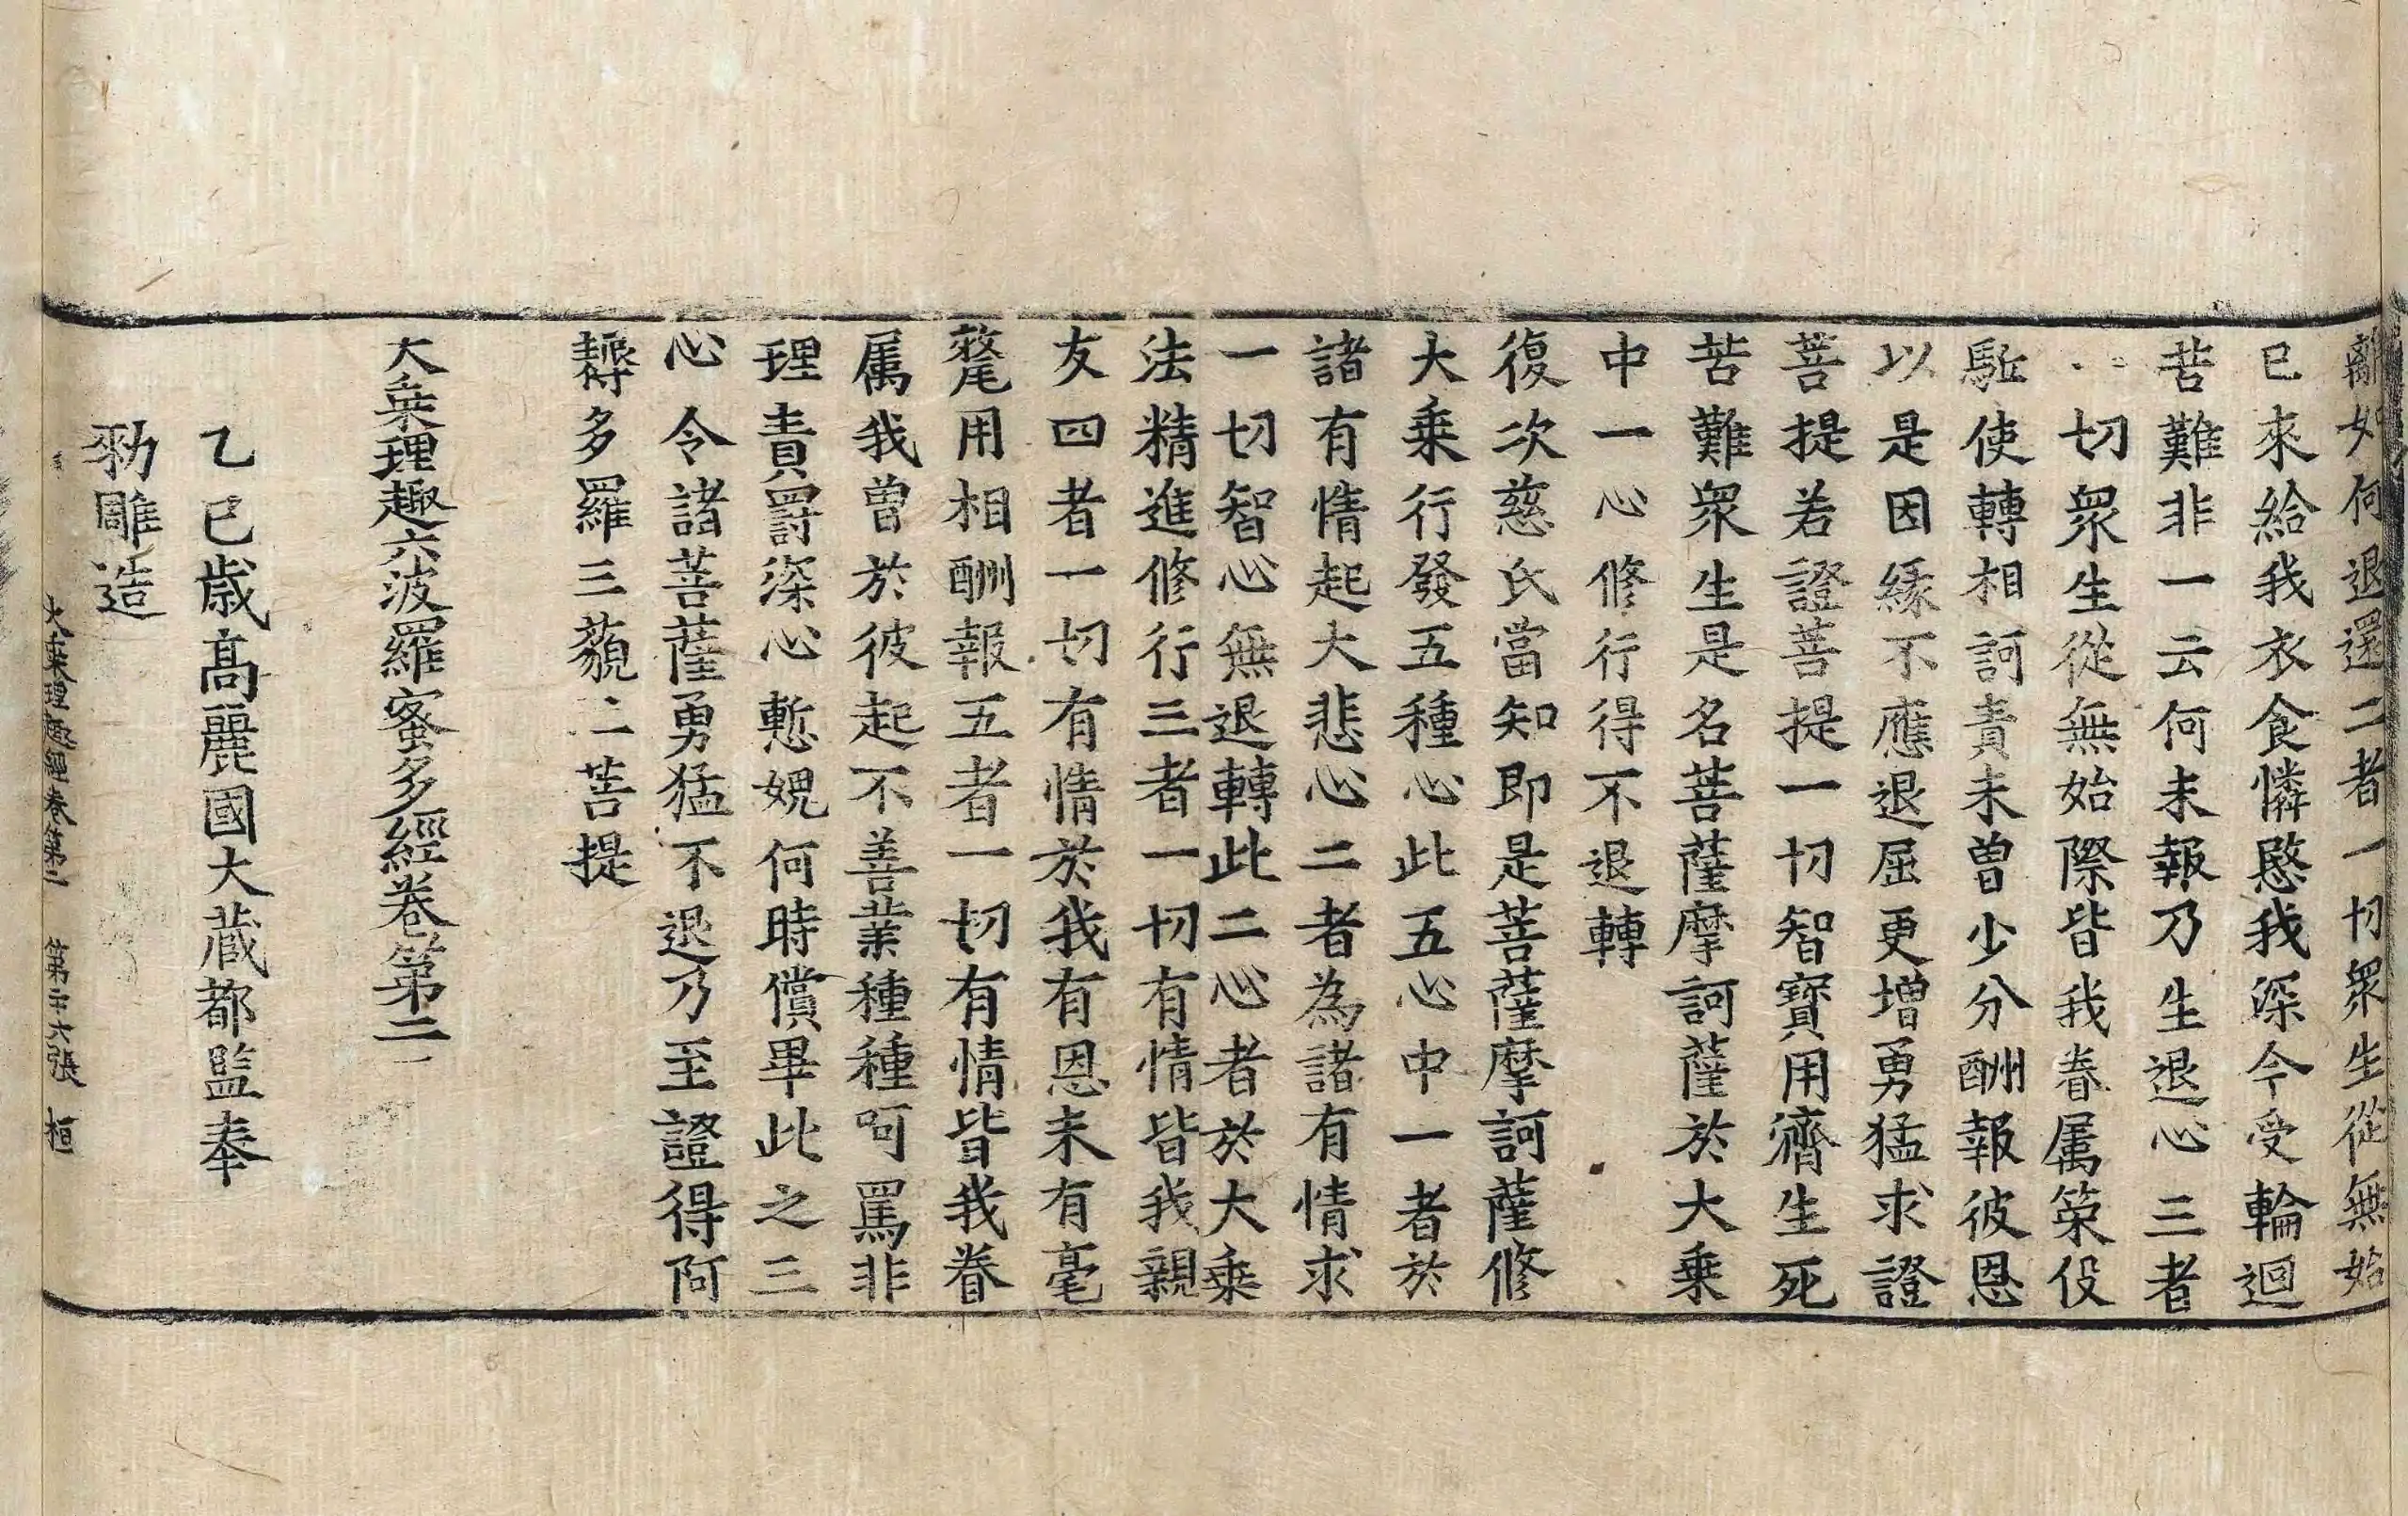 離如何退還二者一切衆生從無始
已來給我衣食憐愍我深今受輪迴
苦難非一云何未報乃生退心三者
一切衆生從無始際皆我眷属策役
駈使轉相訶責未曾少分酬報彼恩
以是因緣不應退屈更增勇猛求證
菩提若證菩提一切智寳用濟生死
苦難衆生是名菩薩摩訶薩於大乗
中一心修行得不退轉
復次慈氏當知即是菩薩摩訶薩修
大乗行發五種心此五心中一者於
諸有情起大悲心二者為諸有情求
一切智心無退轉此二心者於大乗
法精進修行三者一切有情皆我親
友四者一切有情於我有恩未有毫
氂用相酬報五者一切有情皆我眷
属我曾於彼起不善業種種呵罵非
理責罸深心慙媿何時償畢此之三
心令諸菩薩勇猛不退乃至證得阿
耨多羅三藐三菩提
大乗理趣六波羅蜜多經卷第二
乙巳歳高麗國大蔵都監奉
勑雕造
大乗理趣經卷第二 第二十六張 桓